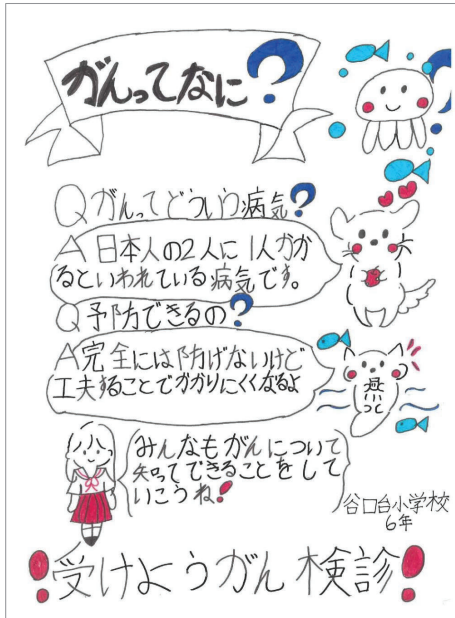 がんってなに?
Qがんってどういう病気?
A日本人の2人に1人がか
るといわれている病気です。
Q予防できるの?
A完全には防げないけど
工夫することでかかりにくくなるよ
みんなもがんについて
知ってできることをして
いこうね!
谷口台小学校
6年
!受けようがん検診!